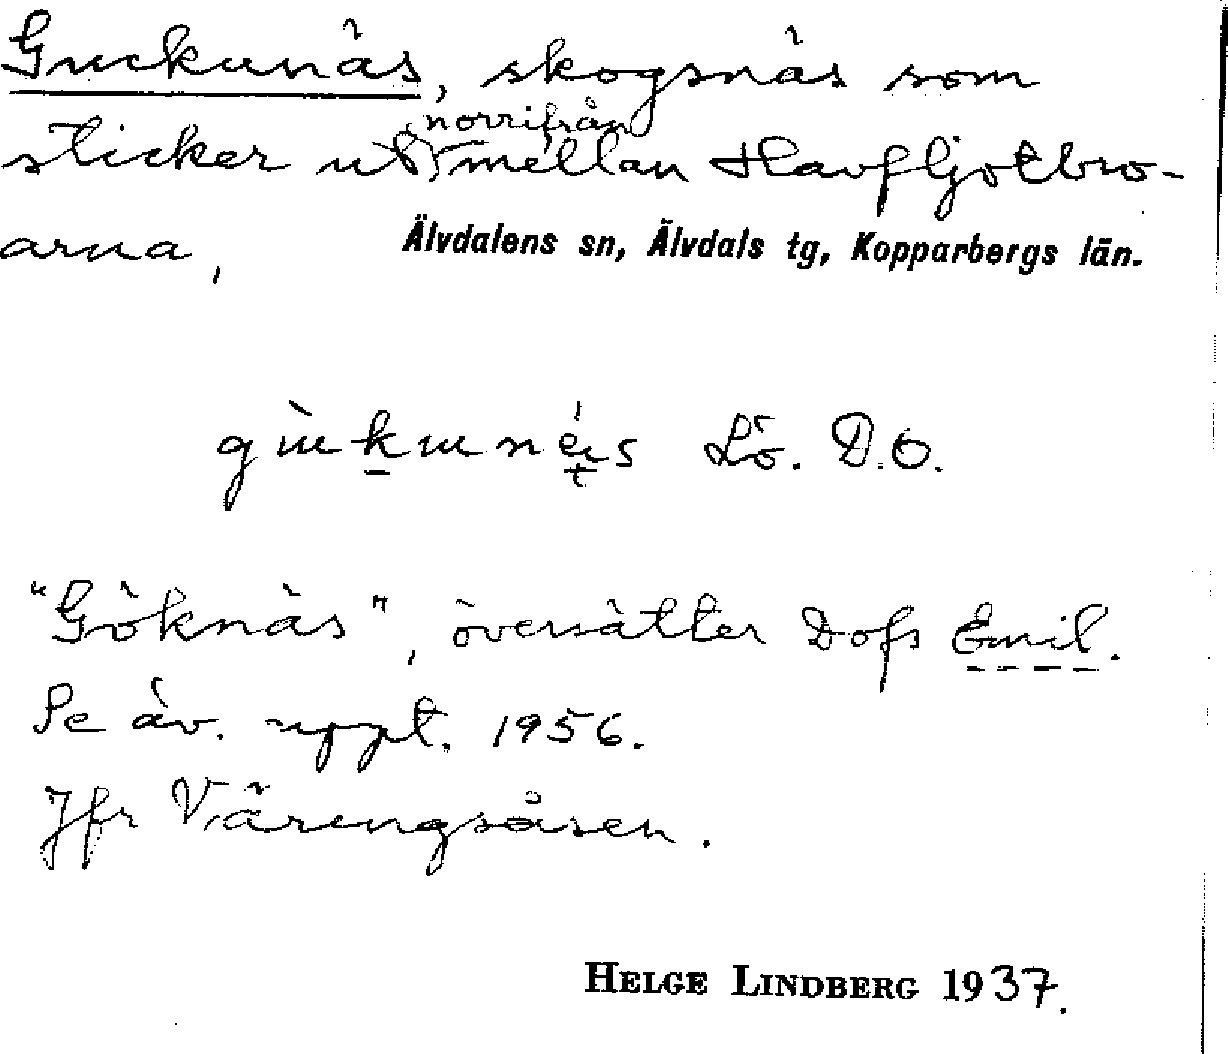 Guckunäs, skogsnäs som
norrifrån
sticker ut mellan Havfljotbro-
arna,
Älvdalens sn, Älvdals tg, Kopparbergs län.
Lö. D.O.
"Göknäs", översätter Dofs Emil.
Se äv. uppt. 1956.
Jfr Värengsåsen.
HELGE LINDBERG 1937.